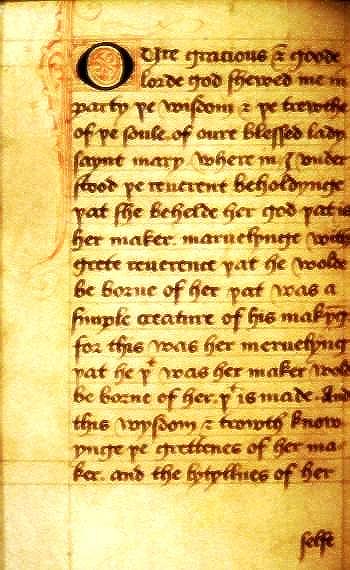 Oure gracious & goode
lorde god shewed me in
party þe wisdom & þe trewthe
of þe soule. of oure blessed lady
saynt mary. where in I vnder
stood þe reuerent beholdynge
þat she behelde her god þat is
her maker. maruelynge with
grete reuerence þat he wolde
be borne of her þat was a
simple creature of his makyng
for this was her meruelyng
þat he þt was her maker wold
be borne of her. þt is made. And
this wysdom & trowth know
ynge þe grettenes of her ma
ker. and the lytyllnes of her
selfe